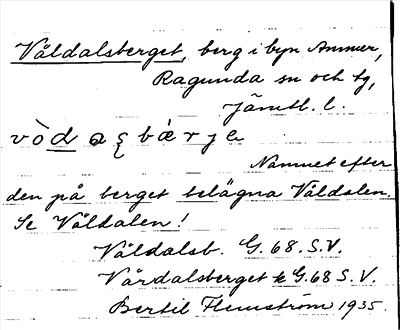 Våldalsberget, berg i byn Ammer,
Ragunda sn och tg,
Jämtl. l.
vò̀d a ʂ bæ̀r j e
Namnet efter
den på berget belägna Våldalen.
Se Våldalen!
Våldalsb. G. 68. S.V.
Vårdalsberget k G.68 S.V.
Bertil Flemström 1935.